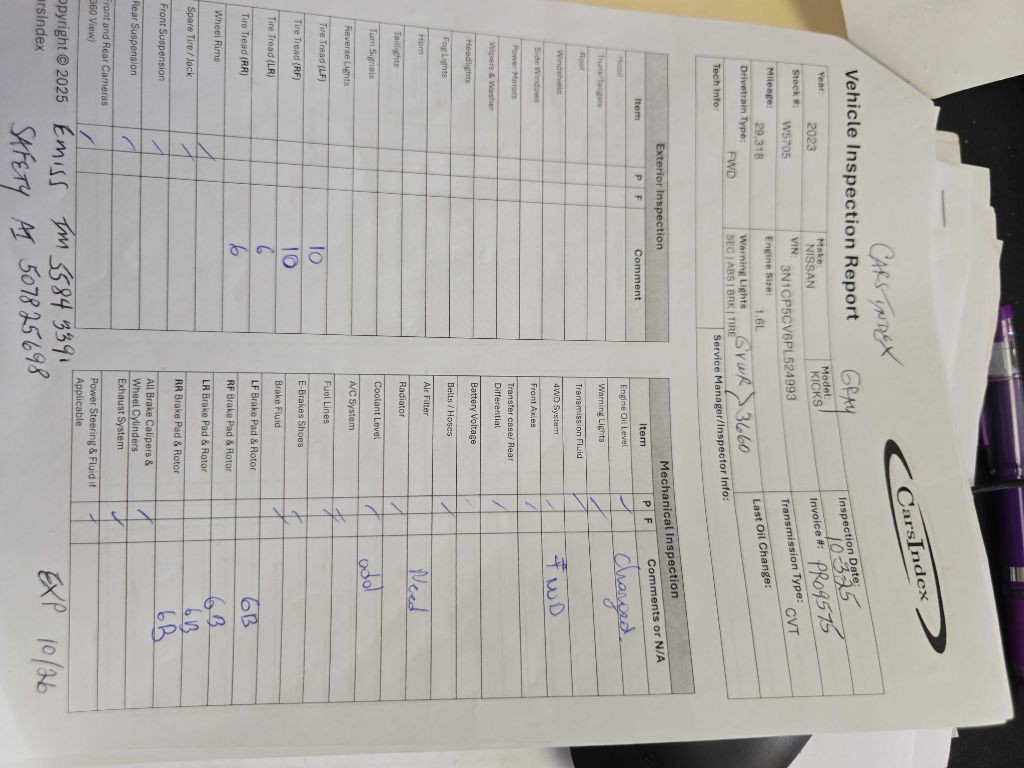 CARS INDEX
GPM
CarsIndex
Vehicle Inspection Report
Inspection Date: 10-3-25
Year: 2023
Make: NISSAN
Model: KICKS
Invoice #: PR09575
Stock #: W5705
VIN: 3N1CP5CV6PL524993
Transmission Type: CVT
Mileage: 29,318
Engine Size: 1.6L
GVWR 3660
Last Oil Change:
Drivetrain Type: FWD
Warning Lights
SEC | ABS | BRK | TIRE
Tech Info:
Service Manager/Inspector Info:
Exterior Inspection
Item P F Comment
Hood
Trunk/Tailgate
Roof
Windshield
Side Windows
Power Mirrors
Wipers & Washer
Headlights
Fog Lights
Horn
Taillights
Turn Signals
Reverse Lights
Tire Tread (LF) 10
Tire Tread (RF) 10
Tire Tread (LR) 6
Tire Tread (RR) 6
Wheel Rims
Spare Tire / Jack
Front Suspension
Rear Suspension
Front and Rear Cameras
360 View)
Mechanical Inspection
Item P F Comments or N/A
Engine Oil Level changed
Warning Lights
Transmission Fluid
4WD System FWD
Front Axles
Transfer case/ Rear
Differential
Battery Voltage
Belts / Hoses
Air Filter Need
Radiator
Coolant Level add
A/C System
Fuel Lines
E-Brakes Shoes
Brake Fluid
LF Brake Pad & Rotor 6B
RF Brake Pad & Rotor 6B
LR Brake Pad & Rotor 6B
RR Brake Pad & Rotor 6B
All Brake Calipers &
Wheel Cylinders
Exhaust System
Power Steering & Fluid if
Applicable
opyright © 2025
arsIndex
EMISS TM 5584 3391
SAFETY AI 507825698
EXP 10/26